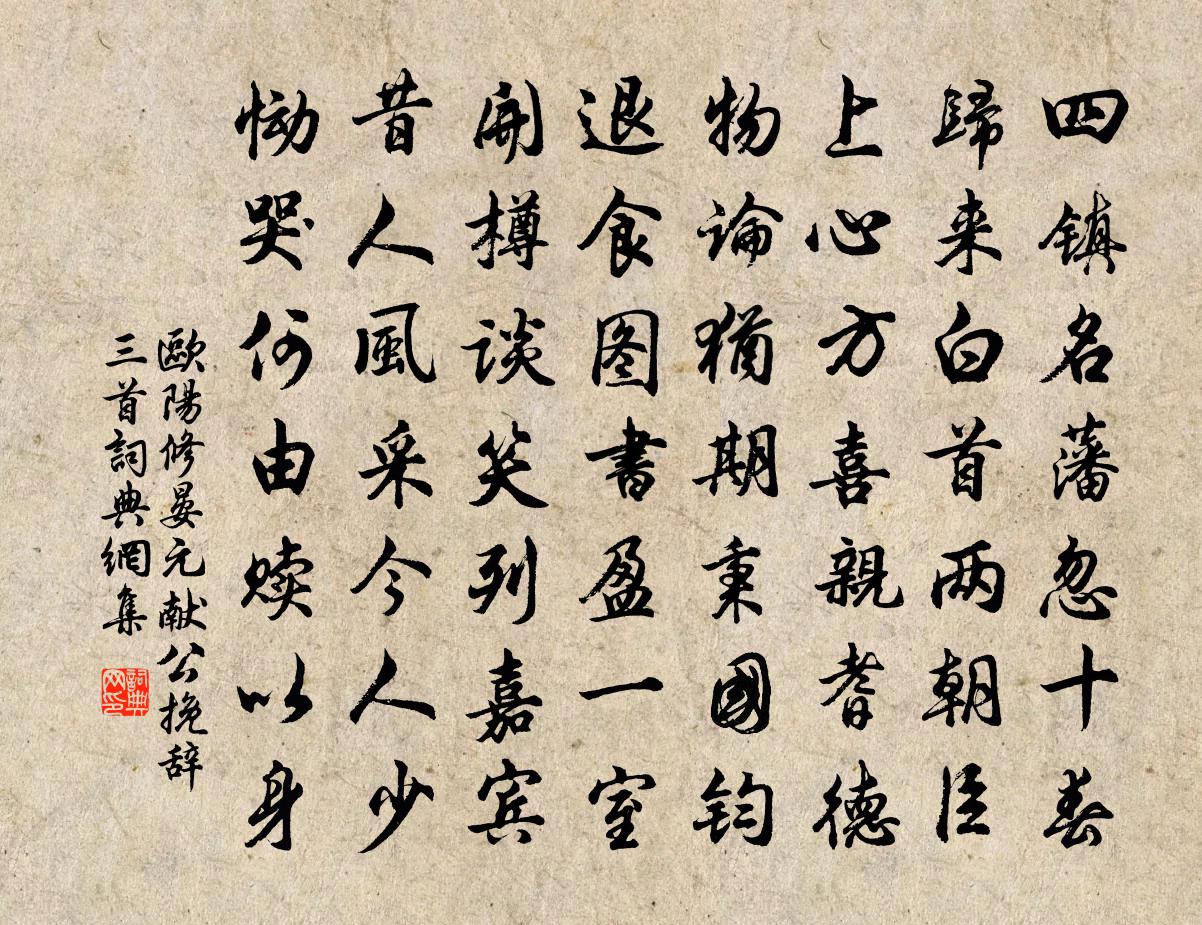 四镇名藩忽十春
歸来白首两朝臣
上心方喜親耆德
物論猶期秉國钧
退食图書盈一室
開樽談笑列嘉宾
昔人風采今人少
恸哭何由赎以身
歐陽修晏元献公挽辞
三首詞典網集
詞典网印